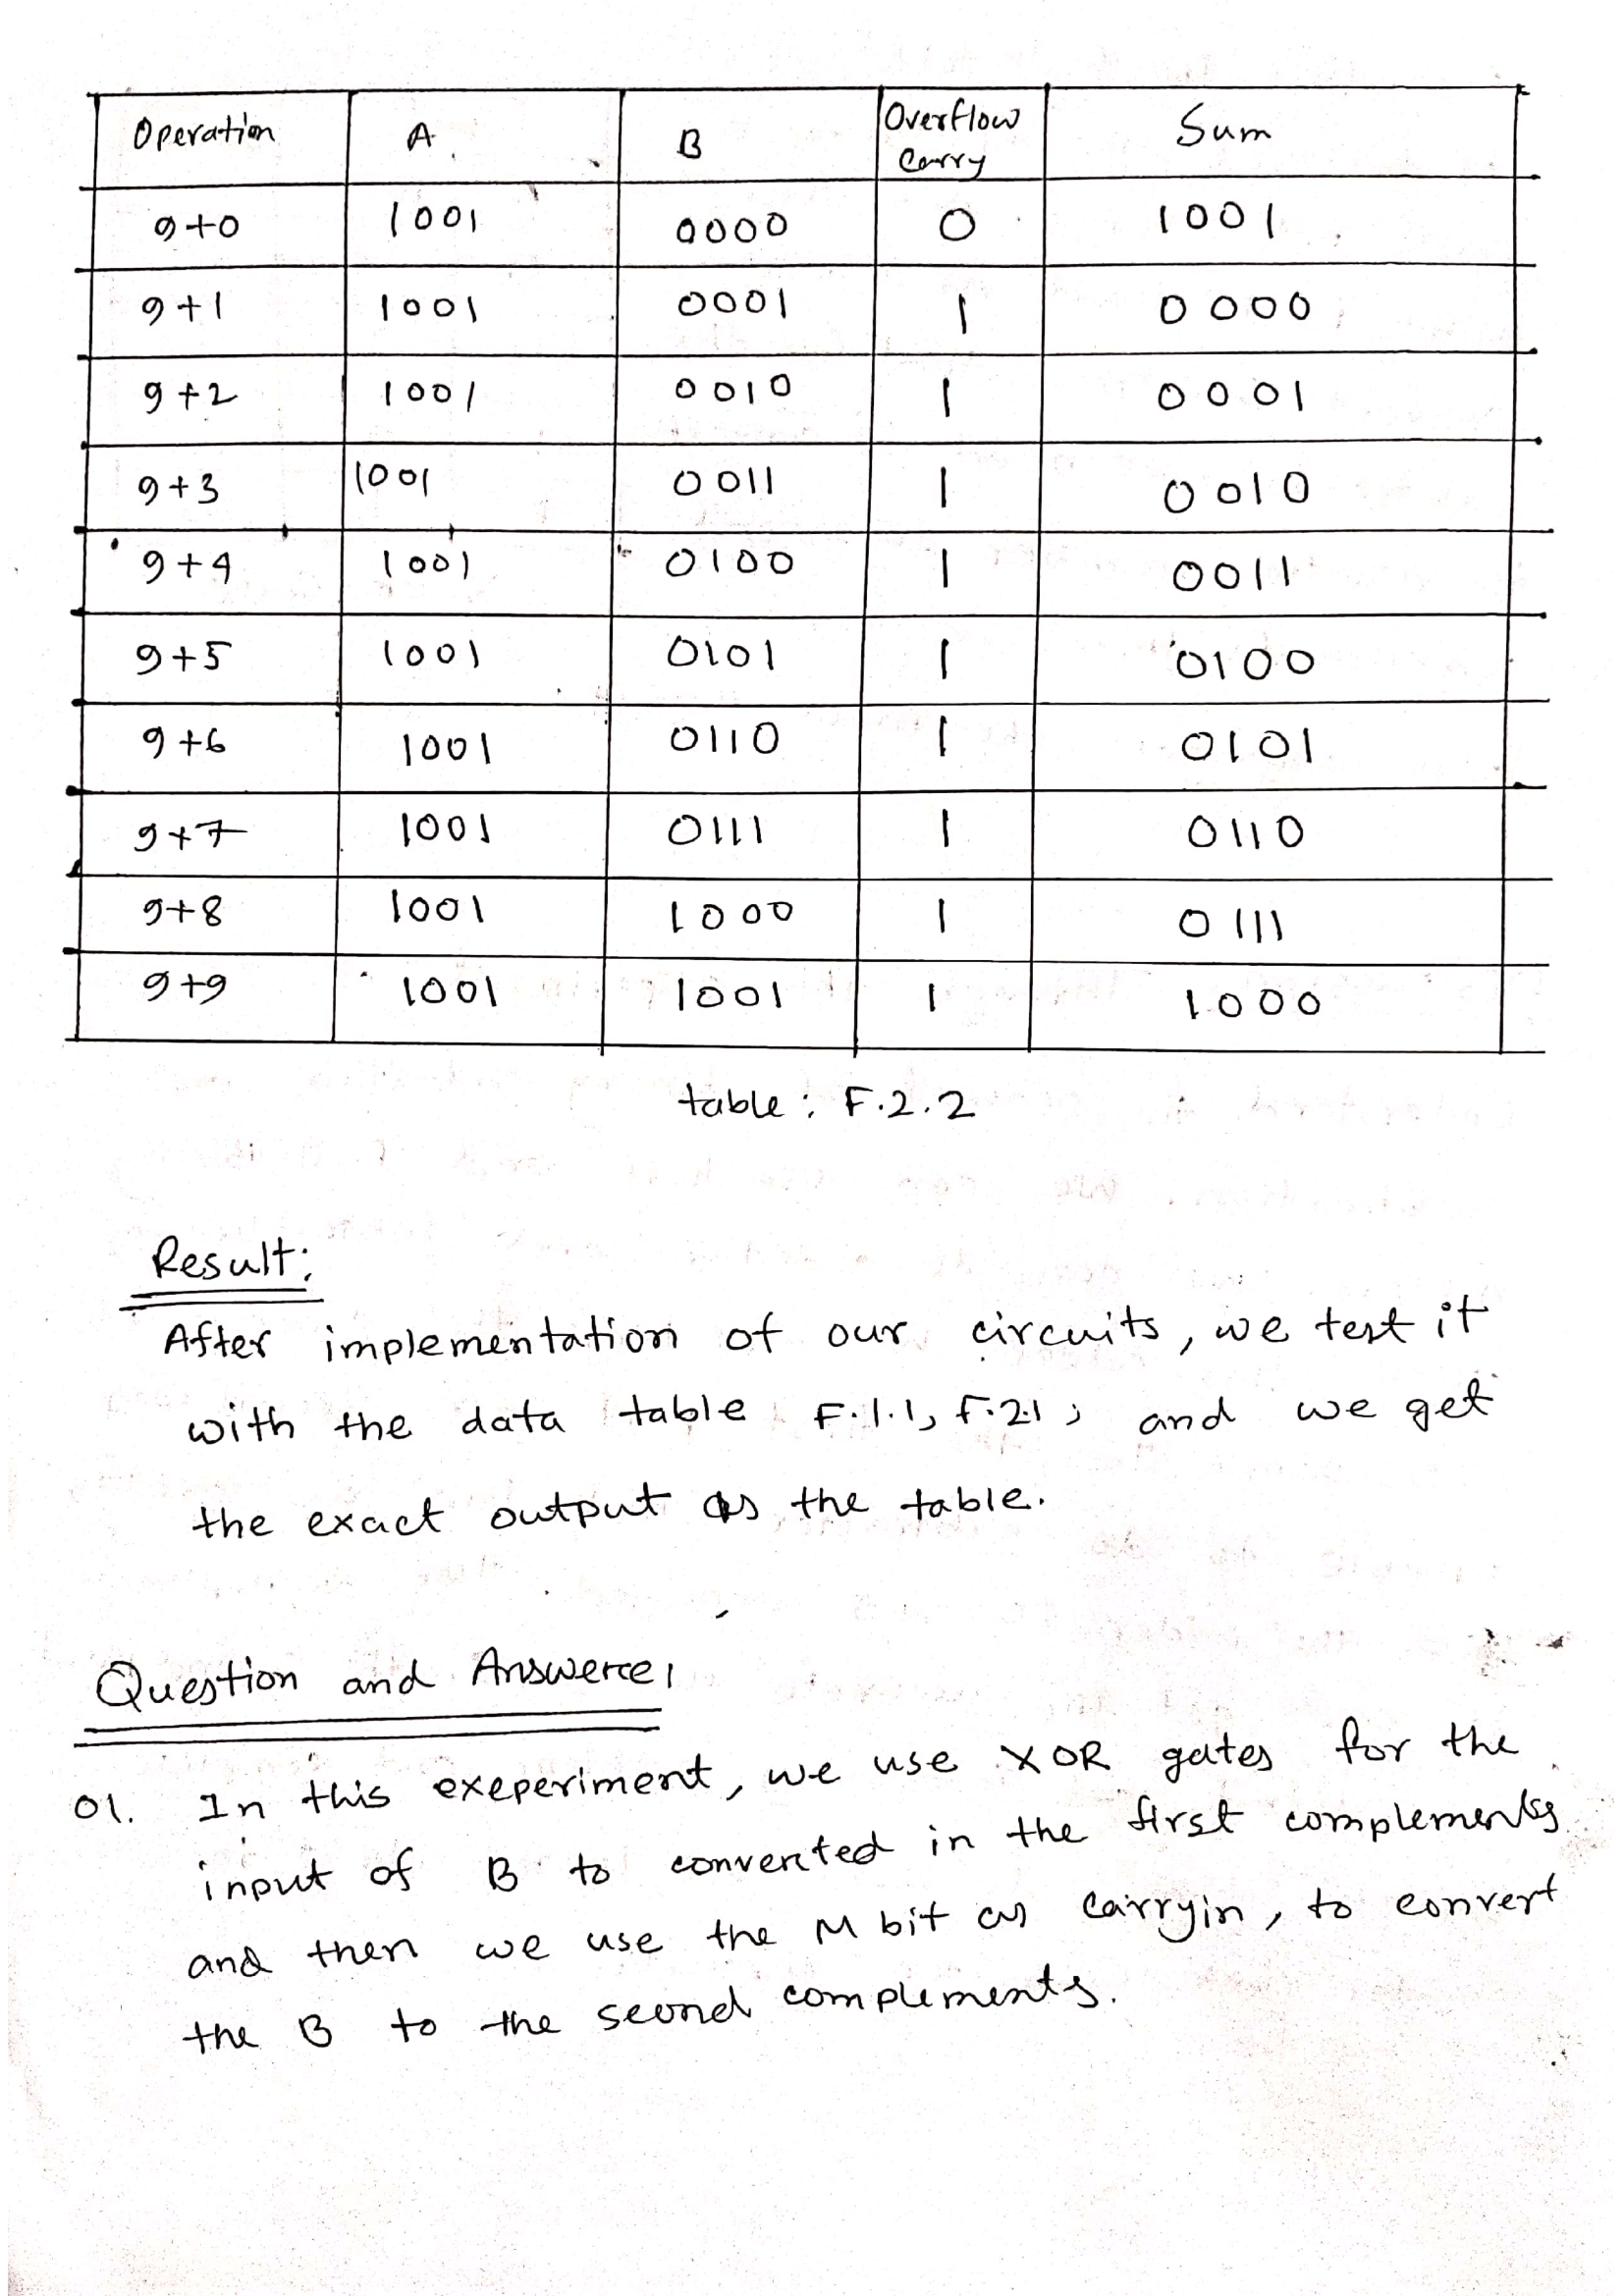 Operation A B Overflow Carry Sum
9+0 1001 0000 0 1001
9+1 1001 0001 1 0000
9+2 1001 0010 1 0001
9+3 1001 0011 1 0010
9+4 1001 0100 1 0011
9+5 1001 0101 1 0100
9+6 1001 0110 1 0101
9+7 1001 0111 1 0110
9+8 1001 1000 1 0111
9+9 1001 1001 1 1000
table: F.2.2
Result:
After implementation of our circuits, we test it
with the data table F.1.1, F.2.1, and we get
the exact output as the table.
Question and Answerce,
01. In this exeperiment, we use XOR gates for the
input of B to converted in the first complements
and then we use the M bit as carryin, to convert
the B to the seond complements.